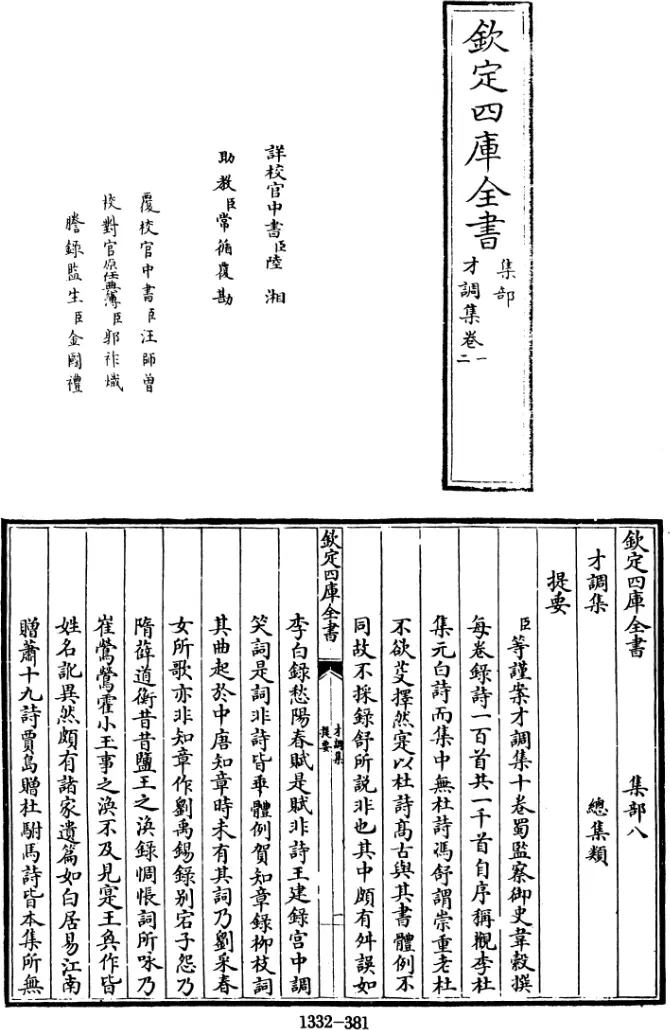 欽定四庫全書
集部
才調集卷一
二
詳校官中書臣陸湘
助教臣常循覆勘
覆校官中書臣汪師曾
校對官原任典簿臣郭祚熾
謄錄監生臣金國禮
欽定四庫全書
集部八
才調集
總集類
提要
臣等謹案才調集十卷蜀監察御史韋縠撰
每卷錄詩一百首共一千首自序稱觀李杜
集元白詩而集中無杜詩馮舒謂崇重老杜
不欲芟擇然寔以杜詩高古與其書體例不
同故不採錄舒所說非也其中頗有舛誤如
欽定四庫全書
才調集
提要
一
李白錄愁陽春賦是賦非詩王建錄宮中調
笑詞是詞非詩皆乖體例賀知章錄柳枝詞
其曲起於中唐知章時未有其詞乃劉采春
女所歌亦非知章作劉禹錫錄别宕子怨乃
隋薛道衡昔昔鹽王之渙錄惆悵詞所咏乃
崔鶯鶯霍小玉事之渙不及見寔王奐作皆
姓名訛異然頗有諸家遺篇如白居易江南
贈蕭十九詩賈島贈杜駙馬詩皆本集所無
1332-381